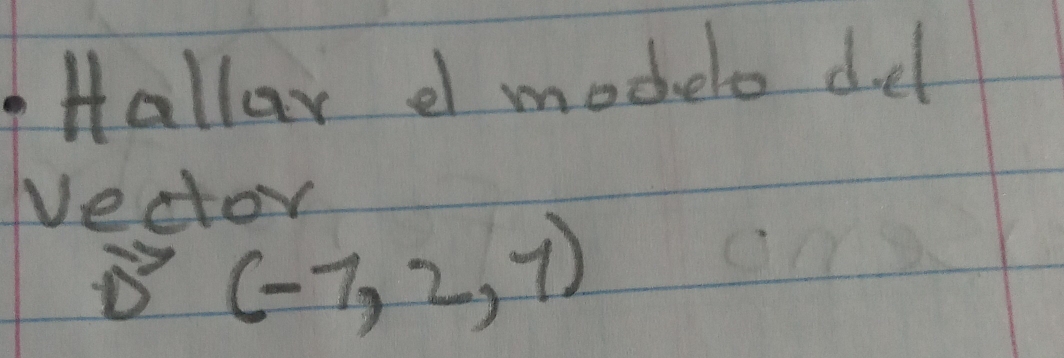 • Hallar el modelo del
vector
D⃗ (-7, 2, 7)